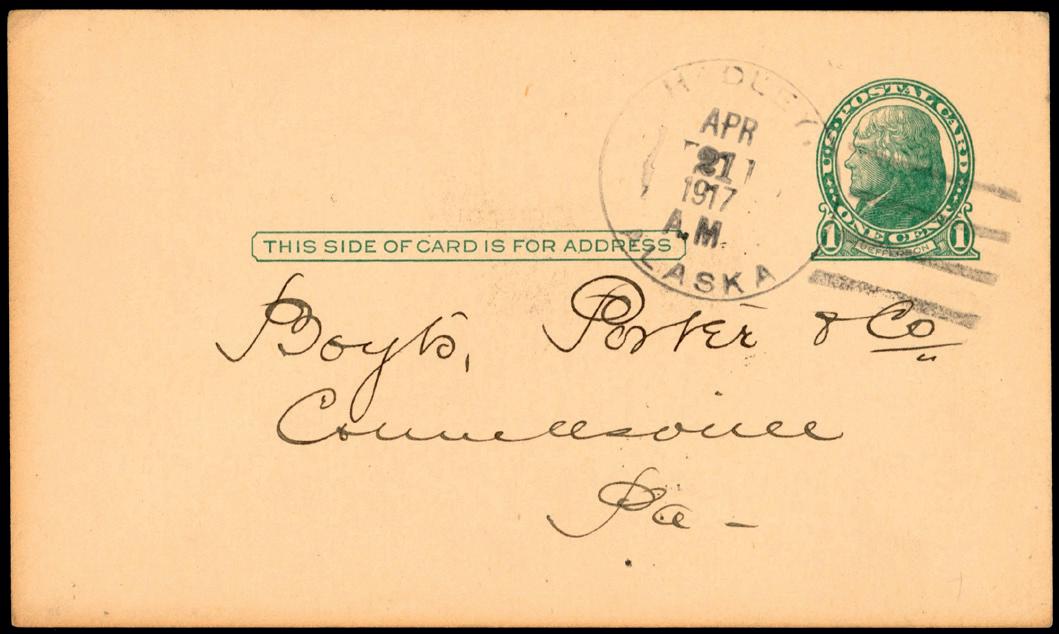 H DLEY.
APR
21
1917
A.M.
ALASKA
U.S. POSTAL CARD
ONE CENT
1 JEFFERSON 1
THIS SIDE OF CARD IS FOR ADDRESS
Boyts, Porter & Co
Connellsville
Pa -